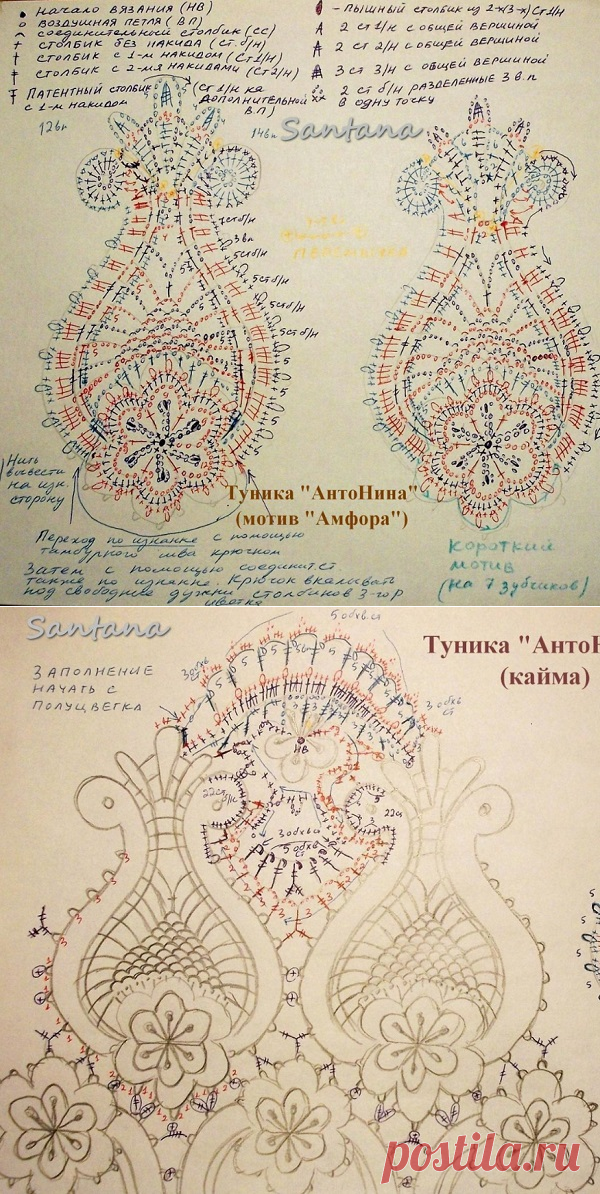 • НАЧАЛО ВЯЗАНИЯ (НВ)
○ ВОЗДУШНАЯ ПЕТЛЯ (ВП)
⌒ СОЕДИНИТЕЛЬНЫЙ СТОЛБИК (СС)
+ СТОЛБИК БЕЗ НАКИДА (СТ. Б/Н)
СТОЛБИК С 1-М НАКИДОМ (СТ1/Н)
СТОЛБИК С 2-МЯ НАКИДАМИ (СТ2/Н)
ПАТЕНТНЫЙ СТОЛБИК (СТ1/Н на
С 1-М НАКИДОМ ДОПОЛНИТЕЛЬНОЙ
В.П)
- ПЫШНЫЙ СТОЛБИК ИЗ 2-х(3-х) СТ1/Н
2 СТ 1/Н С ОБЩЕЙ ВЕРШИНОЙ
2 СТ 2/Н С ОБЩЕЙ ВЕРШИНОЙ
3 СТ 3/Н С ОБЩЕЙ ВЕРШИНОЙ
2 СТ Б/Н РАЗДЕЛЕННЫЕ 3 В.П
В ОДНУ ТОЧКУ
12вп
14вп
Santana
7стб/н
3вп
5стб/н
5стб/н
5стб/н
5стб/н
Нить
вывести
на изн.
сторону
Туника "АнтоНина"
(мотив "Амфора")
Переход по изнанке с помощью
тамбурного шва крючком
Затем с помощью соединит.ст
также по изнанке. Крючок вкалывать
под свободные дужки столбиков 3-го р
цветка
КОРОТКИЙ
МОТИВ
(на 7 зубчиков)
Santana
5 обхв.ст
Туника "АнтоН
(кайма)
ЗАПОЛНЕНИЕ
НАЧАТЬ С
ПОЛУЦВЕТКА
3 обхв
ст
НВ
22сп
б/н
22сп
3 обхв
5 обхв
ст
postila.ru